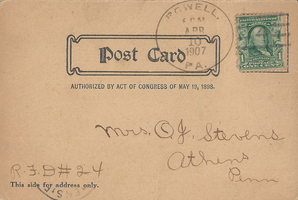 POWELL,
APR
10
1907
PA.
Post Card
AUTHORIZED BY ACT OF CONGRESS OF MAY 19, 1898.
Mrs. O.J. Stevens
Athens
Penn
R.F.D # 24
This side for address only.